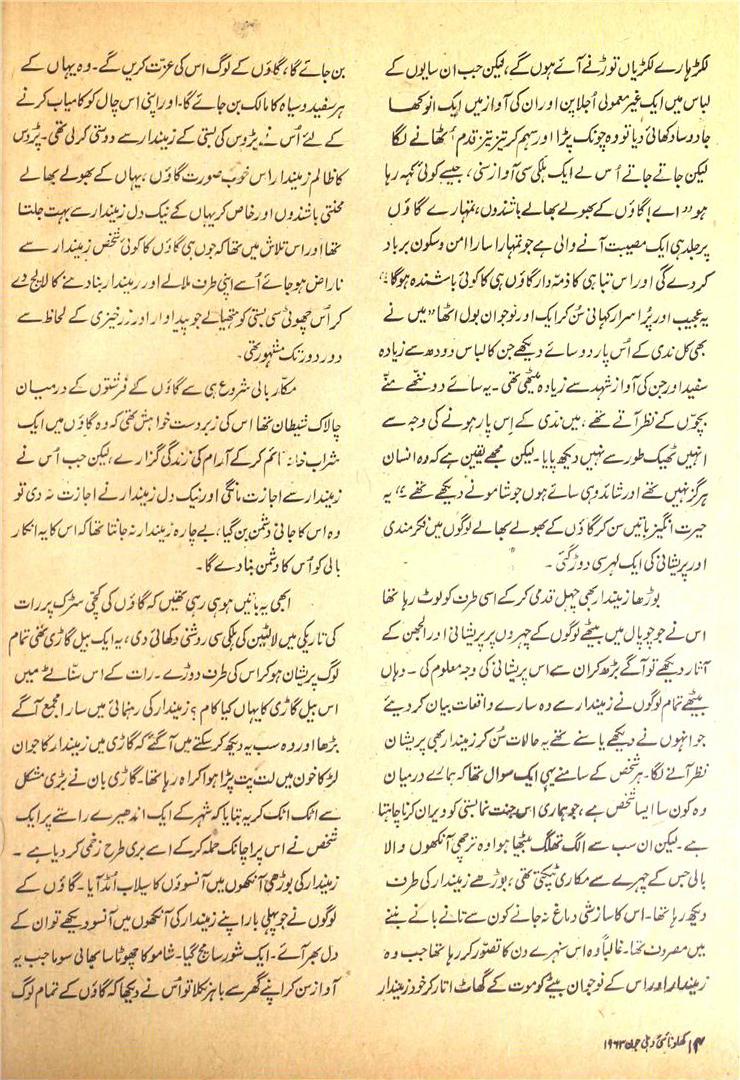 لکڑہارے لکڑیاں توڑنے آئے ہوں گے، لیکن جب ان سایوں کے
لباس میں ایک غیر معمولی اُجلاپن اور ان کی آواز میں ایک انوکھا
جادو سا دکھائی دیا تو وہ چونک پڑا اور سہم کر تیز تیز قدم اُٹھانے لگا
لیکن جاتے جاتے اُس نے ایک ہلکی سی آواز سنی، جیسے کوئی کہہ رہا
ہو "اے! گاؤں کے بھولے بھالے باشندوں، تمہارے گاؤں
پر جلد ہی ایک مصیبت آنے والی ہے جو تمہارا سارا امن و سکون برباد
کر دے گی اور اس تباہی کا ذمّہ دار گاؤں ہی کا کوئی باشندہ ہوگا"
یہ عجیب اور پُراسرار کہانی سُن کر ایک اور نوجوان بول اٹھا "میں نے
بھی کل ندی کے اُس پار دو سائے دیکھے جن کا لباس دودھ سے زیادہ
سفید اور جن کی آواز شہد سے زیادہ میٹھی تھی۔ یہ سائے دو ننّھے منّے
بچّوں کے نظر آتے تھے، میں ندی کے اِس پار ہونے کی وجہ سے
انہیں ٹھیک طور سے نہیں دیکھ پایا۔ لیکن مجھے یقین ہے کہ وہ انسان
ہرگز نہیں تھے اور شائد وہی سائے ہوں جو شامو نے دیکھے تھے" یہ
حیرت انگیز باتیں سن کر گاؤں کے بھولے بھالے لوگوں میں فکرمندی
اور پریشانی کی ایک لہر سی دوڑ گئی۔
بوڑھا زمیندار بھی چہل قدمی کر کے اسی طرف کو لوٹ رہا تھا
اس نے جو چوپال میں بیٹھے لوگوں کے چہروں پر پریشانی اور الجھن کے
آثار دیکھے تو آگے بڑھ کر ان سے اس پریشانی کی وجہ معلوم کی۔ وہاں
بیٹھے تمام لوگوں نے زمیندار سے وہ سارے واقعات بیان کر دیئے
جو انہوں نے دیکھے یا سنے تھے یہ حالات سُن کر زمیندار بھی پریشان
نظر آنے لگا۔ ہر شخص کے سامنے یہی ایک سوال تھا کہ ہمارے درمیان
وہ کون سا ایسا شخص ہے، جو ہماری اس جنت نما بستی کو ویران کرنا چاہتا
ہے۔ لیکن ان سب سے الگ تھلگ بیٹھا ہوا وہ ترچھی آنکھوں والا
بالی جس کے چہرے سے مکاری ٹپکتی تھی، بوڑھے زمیندار کی طرف
دیکھ رہا تھا۔ اس کا سازشی دماغ نہ جانے کون سے تانے بانے بننے
میں مصروف تھا۔ غالباً وہ اس سنہرے دن کا تصوّر کر رہا تھا جب وہ
زمیندار اور اس کے نوجوان بیٹے کو موت کے گھاٹ اتار کر خود زمیندار
بن جائے گا، گاؤں کے لوگ اس کی عزّت کریں گے۔ وہ یہاں کے
ہر سفید و سیاہ کا مالک بن جائے گا۔ اور اپنی اس چال کو کامیاب کرنے
کے لئے اُس نے پڑوس کی بستی کے زمیندار سے دوستی کر لی تھی۔ پڑوس
کا ظالم زمیندار اس خوب صورت گاؤں، یہاں کے بھولے بھالے
محنتی باشندوں اور خاص کر یہاں کے نیک دل زمیندار سے بہت جلتا
تھا اور اس تلاش میں تھا کہ جوں ہی گاؤں کا کوئی شخص زمیندار سے
ناراض ہو جائے اُسے اپنی طرف ملا لے اور زمیندار بنا دینے کا لالچ دے
کر اُس چھوٹی سی بستی کو ہتھیا لے جو پیداوار اور زرخیزی کے لحاظ سے
دور دور تک مشہور تھی۔
مکّار بالی شروع ہی سے گاؤں کے فرشتوں کے درمیان
چالاک شیطان تھا اس کی زبردست خواہش تھی کہ وہ گاؤں میں ایک
شراب خانہ قائم کر کے آرام کی زندگی گزارے، لیکن جب اُس نے
زمیندار سے اجازت مانگی اور نیک دل زمیندار نے اجازت نہ دی تو
وہ اس کا جانی دشمن بن گیا، بے چارہ زمیندار نہ جانتا تھا کہ اس کا یہ انکار
بالی کو اُس کا دشمن بنا دے گا۔
ابھی یہ باتیں ہو ہی رہی تھیں کہ گاؤں کی کچّی سڑک پر رات
کی تاریکی میں لالٹین کی ہلکی سی روشنی دکھائی دی، یہ ایک بیل گاڑی تھی تمام
لوگ پریشان ہو کر اس کی طرف دوڑے۔ رات کے اس سنّاٹے میں
اس بیل گاڑی کا یہاں کیا کام؟ زمیندار کی رہنمائی میں سارا مجمع آگے
بڑھا اور وہ سب یہ دیکھ کر سکتے میں آ گئے کہ گاڑی میں زمیندار کا جوان
لڑکا خون میں لت پت پڑا ہوا کراہ رہا تھا۔ گاڑی بان نے بڑی مشکل
سے اٹک اٹک کر یہ بتایا کہ شہر کے ایک اندھیرے راستے پر ایک
شخص نے اس پر اچانک حملہ کر کے اسے بری طرح زخمی کر دیا ہے۔
زمیندار کی بوڑھی آنکھوں میں آنسوؤں کا سیلاب اُمڈ آیا۔ گاؤں کے
لوگوں نے جو پہلی بار اپنے زمیندار کی آنکھوں میں آنسو دیکھے تو ان کے
دل بھر آئے۔ ایک شور سا مچ گیا۔ شامو کا چھوٹا سا بھائی سوما جب یہ
آواز سن کر اپنے گھر سے باہر نکلا تو اُس نے دیکھا کہ گاؤں کے تمام لوگ
۱۴ کھلونا نئی دہلی جون ۱۹۶۳